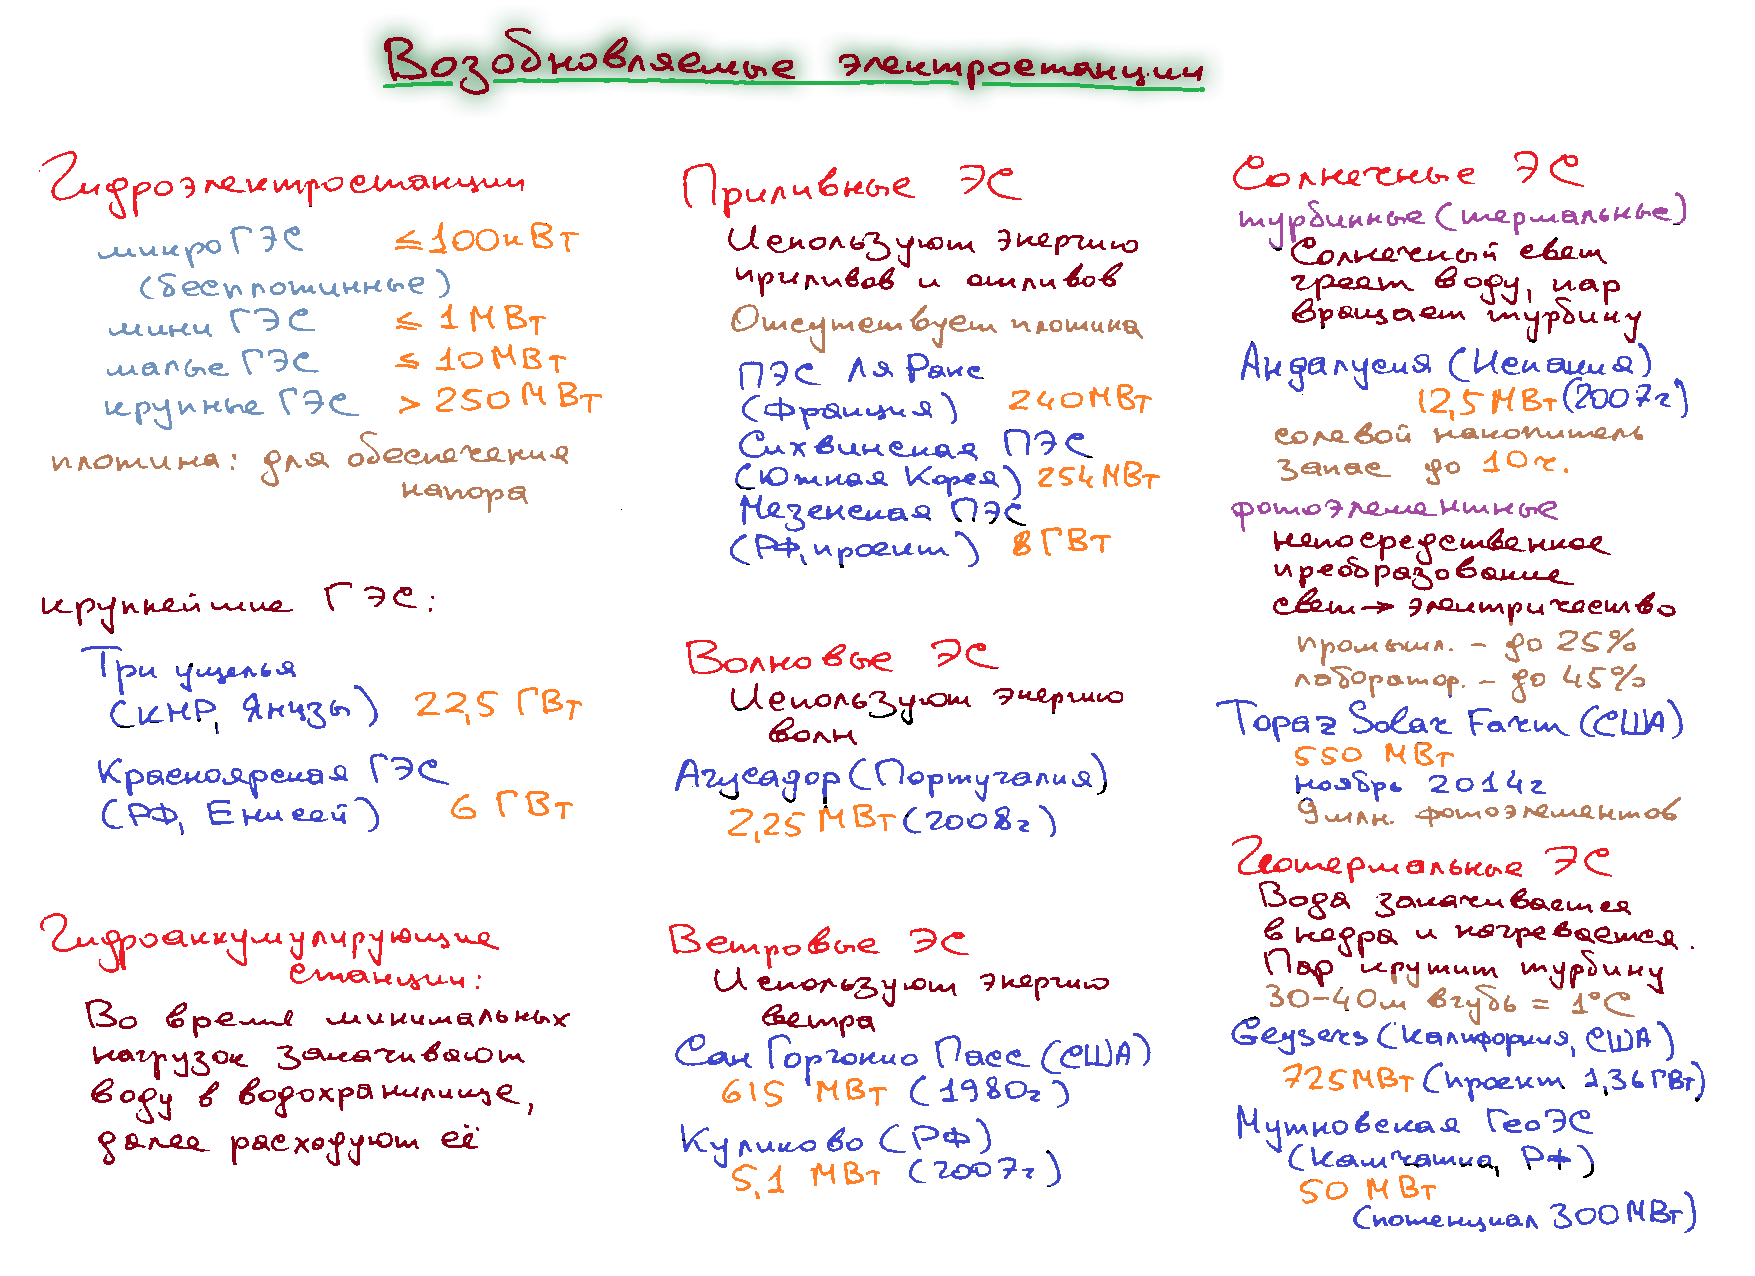 Возобновляемые электростанции
Гидроэлектростанции
микро ГЭС ≤ 100кВт
(бесплотинные)
мини ГЭС ≤ 1 МВт
малые ГЭС ≤ 10 МВт
крупные ГЭС > 250 МВт
плотина: для обеспечения
напора
крупнейшие ГЭС:
Три ущелья
(КНР, Янцзы) 22,5 ГВт
Красноярская ГЭС
(РФ, Енисей) 6 ГВт
Гидроаккумулирующие
станции:
Во время минимальных
нагрузок закачивают
воду в водохранилище,
далее расходуют её
Приливные ЭС
Используют энергию
приливов и отливов
Отсутствует плотина
ПЭС Ля Ранс
(Франция) 240МВт
Сихвинская ПЭС
(Южная Корея) 254МВт
Мезенская ПЭС
(РФ, проект) 8 ГВт
Волновые ЭС
Используют энергию
волн
Агусадор (Португалия)
2,25 МВт (2008г)
Ветровые ЭС
Используют энергию
ветра
Сан Горгонио Пасс (США)
615 МВт (1980г)
Куликово (РФ)
5,1 МВт (2007г)
Солнечные ЭС
турбинные (термальные)
Солнечный свет
греет воду, пар
вращает турбину
Андалусия (Испания)
12,5 МВт (2007г)
солевой накопитель
запас до 10ч.
фотоэлементные
непосредственное
преобразование
свет → электричество
промышл. - до 25%
лаборатор. - до 45%
Topaz Solar Farm (США)
550 МВт
ноябрь 2014г
9 млн. фотоэлементов
Геотермальные ЭС
Вода закачивается
в недра и нагревается.
Пар крутит турбину
30-40м вглубь = 1°С
Geysers (Калифорния, США)
725МВт (проект 1,36 ГВт)
Мутновская ГеоЭС
(Камчатка, РФ)
50 МВт
(потенциал 300 МВт)